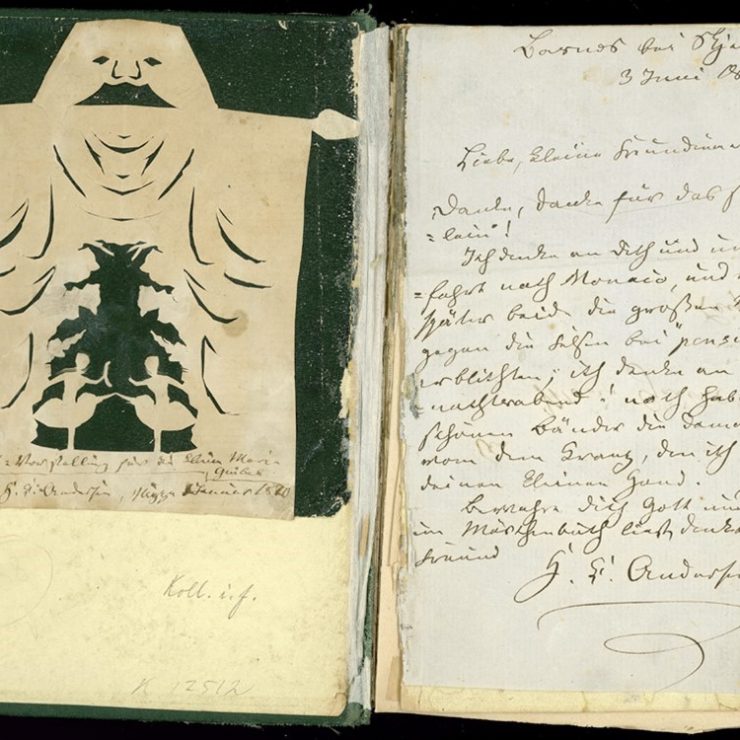 Vorstellung für die kleine Marie
H. C. Andersen, Nizza Januar 1870
Koll. i. f.
K 12512
Basnæs bei Skjæ
3 Juni
Liebe, kleine Freundinn
Danke, danke für das
=lein!
Ich denke an Dich und
=fahrt nach Monaco, und
später beide die großen
gegen die Felsen bei "pensi
erblickten, ich denke an
! noch hab
schönen Bänder die
von dem Kranz, den ich
deinen kleinen Hand.
Bewahre dich Gott und
im Märchenbuch ließ, denke
Freund
H. C. Anderse